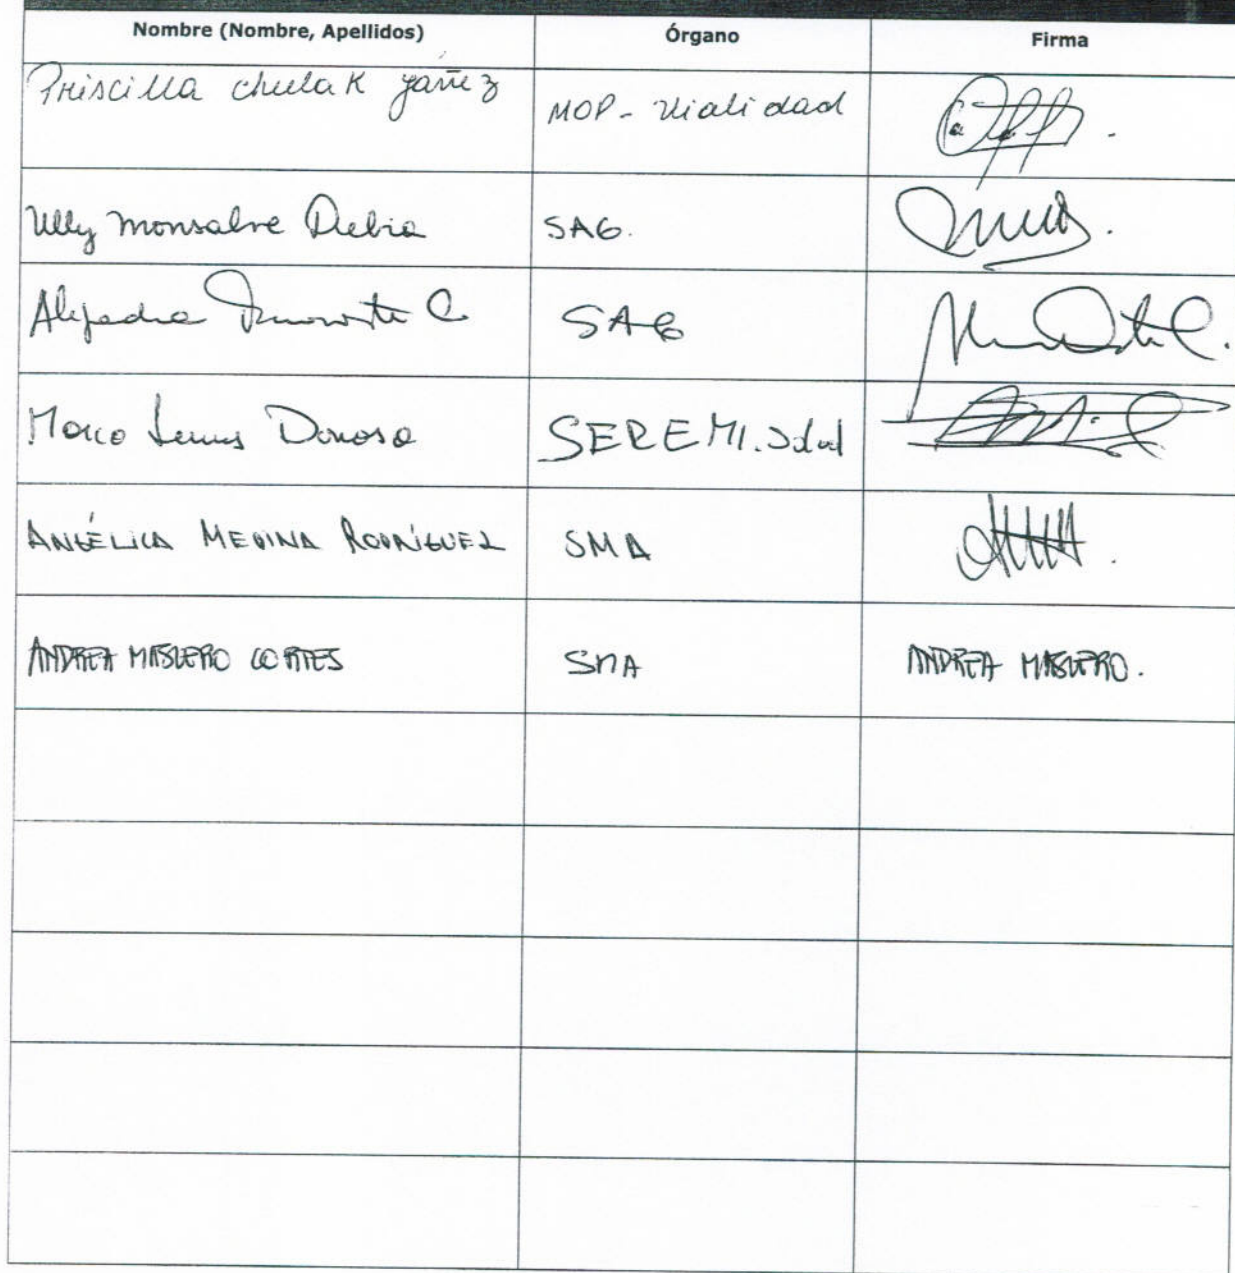 Nombre (Nombre, Apellidos) Órgano Firma
Priscilla chulak yáñez MOP - Vialidad
Monsalve SAG.
Alejandra C SAG
Marco Lemus Donoso SEREMI. Salud
ANGÉLICA MEDINA RODRÍGUEZ SMA
ANDREA MASUERO CORTES SMA ANDREA MASUERO.